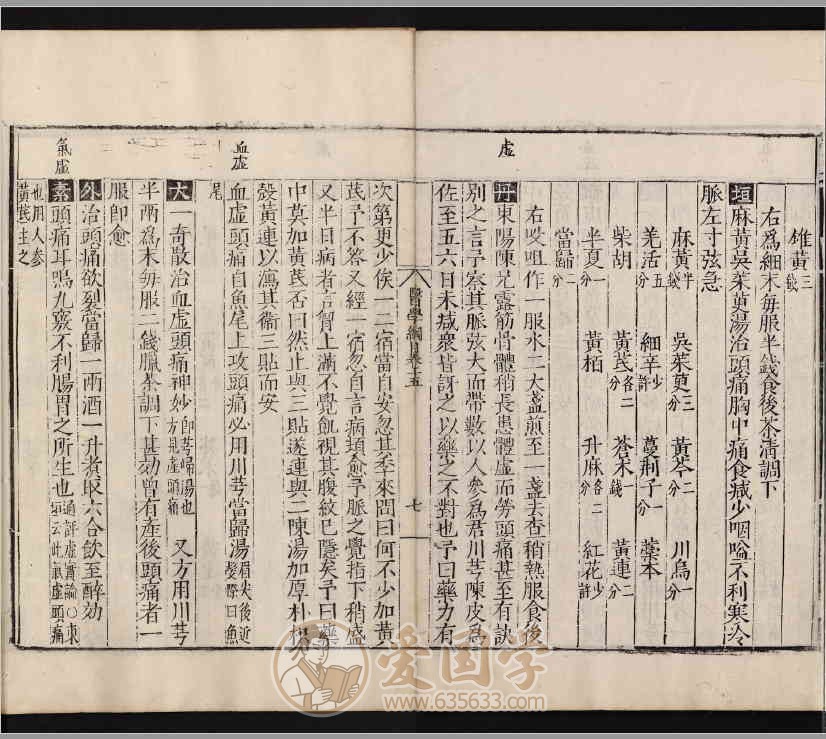 雄黄三錢
右爲細末每服半錢食後茶清調下
垣麻黄吳茱萸湯治頭痛胸中痛食減少咽嗌不利寒冷
脈左寸弦急
麻黄半錢 吳茱萸三分 黄芩二分 川烏一分
羌活五分 細辛少許 蔓荆子一分 藁本
柴胡 黄芪各二分 蒼朮一錢 黄連二分
半夏一分 黄栢 升麻各二分 紅花少許
當歸二分
右㕮咀作一服水二大盞煎至一盞去查稍熱服食後
虚
丹東陽陳兄露筋骨體稍長患體虚而勞頭痛甚至有訣
別之言予察其脈弦大而帶數以人參爲君川芎陳皮爲
佐至五六日未減衆皆訝之以藥之不對也予曰藥力有
醫學綱目卷十五
七
次第更少俟一二宿當自安忽其季來問曰何不少加黄
芪予不答又經一宿忽自言病頓愈予脈之覺指下稍盛
又半日病者言胷上滿不覺飢視其腹紋已隱矣予曰藥
中莫加黄芪否曰然止與三貼遂速與二陳湯加厚朴枳
殼黄連以瀉其衞三貼而安
血虚
血虚頭痛自魚尾上攻頭痛必用川芎當歸湯眉尖後近髮際曰魚
尾
大一奇散治血虚頭痛神妙即芎歸湯也方見虚頭痛 又方用川芎
半兩爲末每服二錢臘茶調下甚効曾有產後頭痛者一
服即愈
外治頭痛欲裂當歸二兩酒一升煮取六合飲至醉効
氣虚
素頭痛耳鳴九竅不利腸胃之所生也通評虚實論○東垣云此氣虚頭痛
也用人參黄芪主之
爱国学
www.635633.com